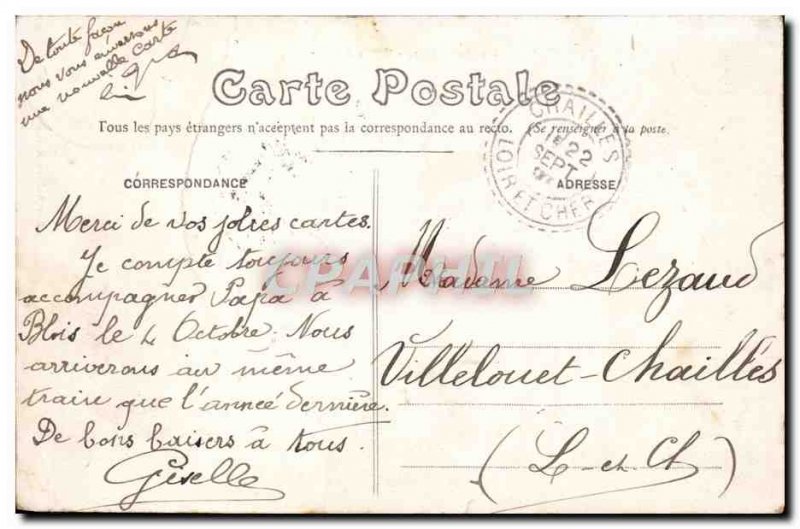 De toute façon
nous vous enverrons
une nouvelle carte
Carte Postale
Tous les pays étrangers n'acceptent pas la correspondance au recto. (Se renseigner à la poste.
CHAILLES
22
SEPT
LOIR ET CHER
CORRESPONDANCE
ADRESSE
Merci de vos jolies cartes.
Je compte toujours
accompagner Papa à
Blois le 4 Octobre. Nous
arriverons au même
train que l'année dernière.
De bons baisers à tous.
Giselle
Madame Lezaud
Villelouet-Chailles
(L-et-Ch)
CPAPHIL